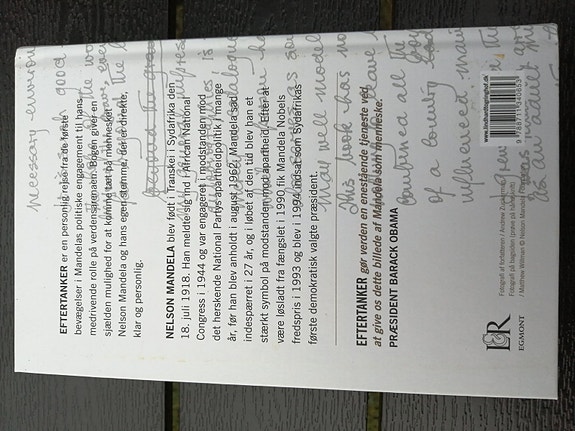 necessary environm
EFTERTANKER er en personlig rejse fra de første
bevægelser i Mandelas politiske engagement til hans
medrivende rolle på verdensscenen. Bogen giver en
sjælden mulighed for at komme tæt på mennesket
Nelson Mandela og hans egen stemme, der er direkte,
klar og personlig.
NELSON MANDELA blev født i Transkei i Sydafrika den
18. juli 1918. Han meldte sig ind i African National
Congress i 1944 og var engageret i modstanden mod
det herskende National Partys apartheidpolitik i mange
år, før han blev anholdt i august 1962. Mandela sad
indespærret i 27 år, og i løbet af den tid blev han et
stærkt symbol på modstanden mod apartheid. Efter at
være løsladt fra fængslet i 1990 fik Mandela Nobels
fredspris i 1993 og blev i 1994 indsat som Sydafrikas
første demokratisk valgte præsident.
may well model
This book has no
EFTERTANKER gør verden en enestående tjeneste ved
at give os dette billede af Mandela som menneske.
PRÆSIDENT BARACK OBAMA
combined all the
of a country lad
influenced many
Fotografi af forfatteren / Andrew Zuckerman
Fotografi på bagsiden (prøve på håndskrift)
/ Matthew Willman © Nelson Mandela
www.lindhardtogringhof.dk
9 788711 340653
L&R
EGMONT